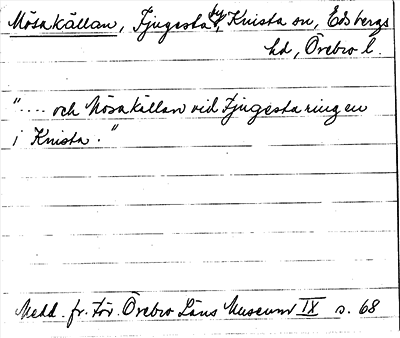 Mösakällan, Fjugesta by, Knista sn, Edsbergs
hd, Örebro l.
".... och Mösakällan vid Fjugestaringen
i Knista."
Medd. fr. För. Örebro Läns Museum IX s. 68